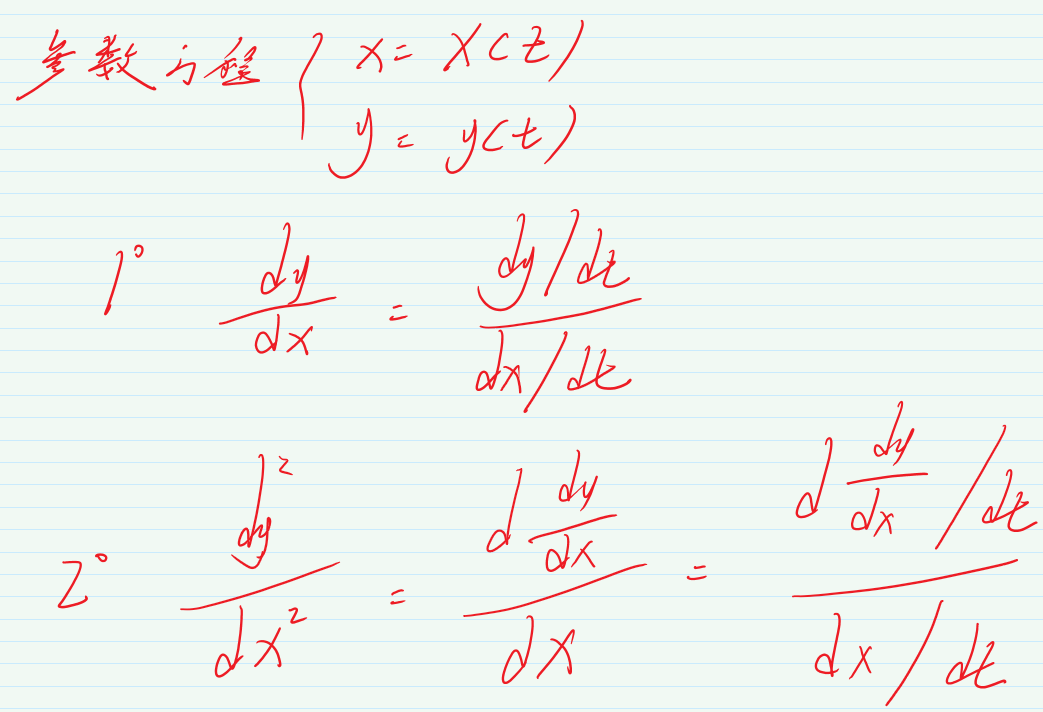 参数方程 { x = x(t)
y = y(t)
1° dy/dx = (dy/dt)/(dx/dt)
2° d²y/dx² = (d dy/dx)/dx = (d dy/dx /dt)/(dx/dt)